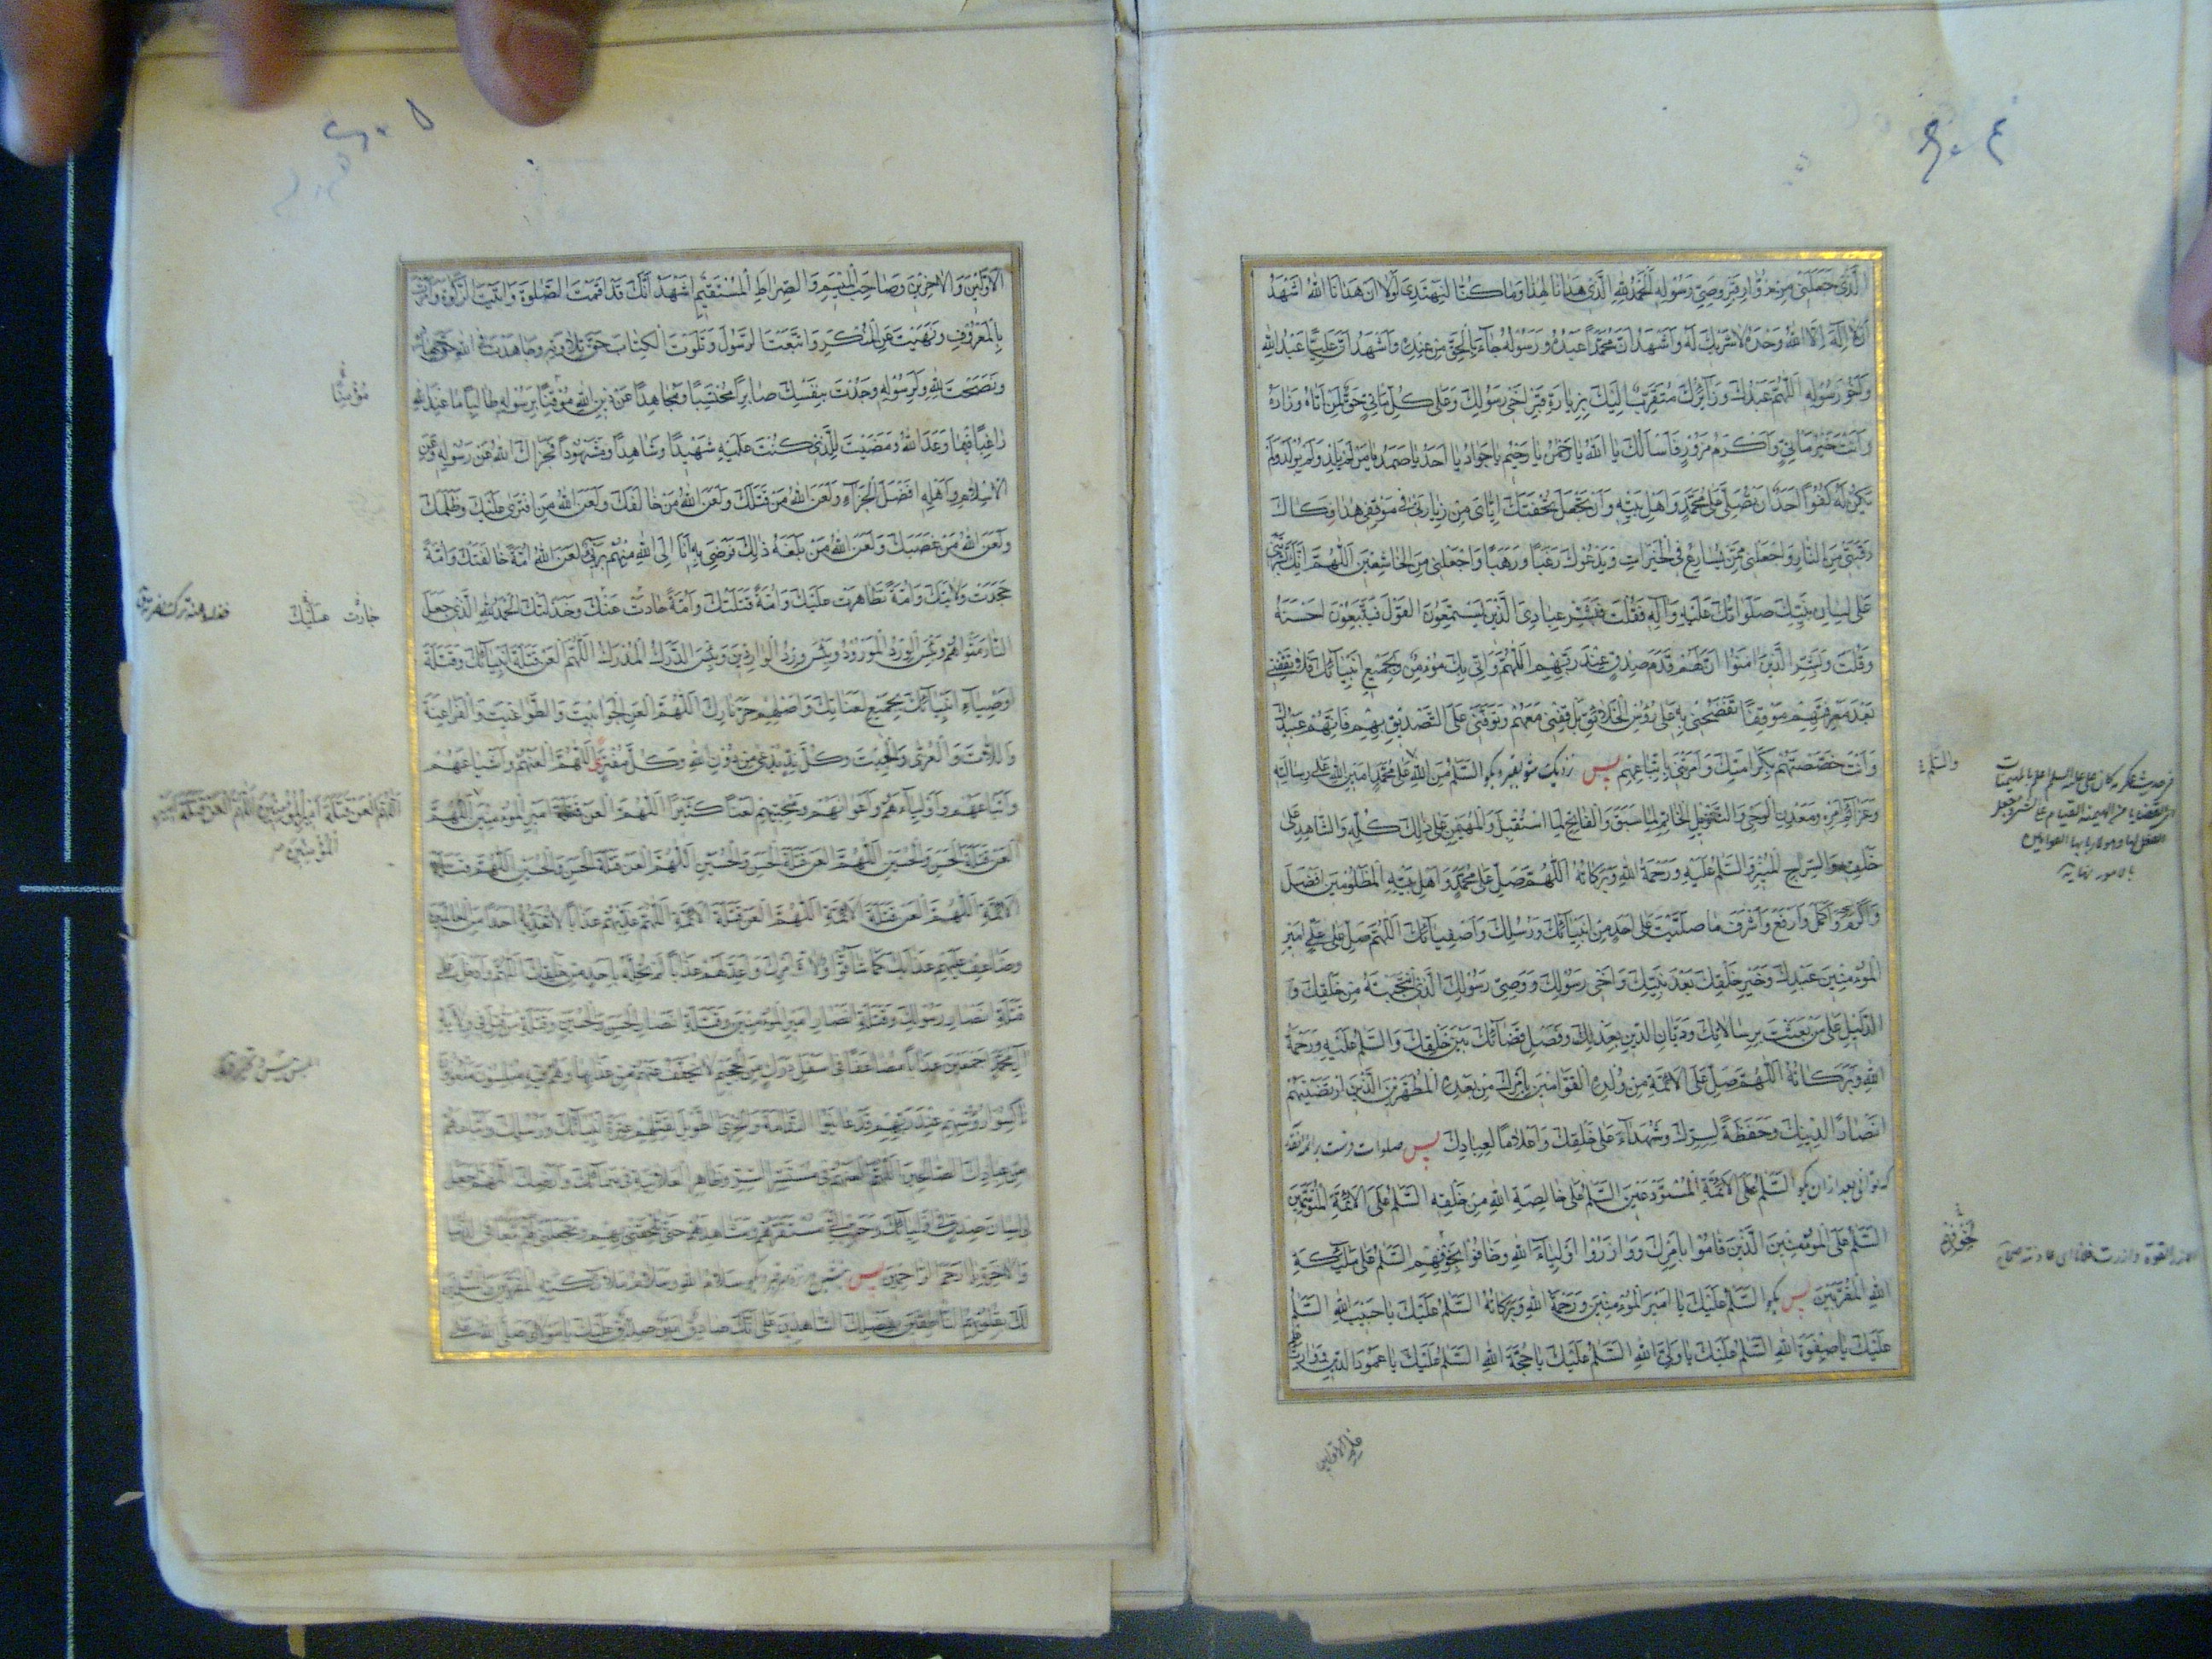 الَّذي جَعَلَني مِن زُوّارِ قَبرِ وَصِيِّ رَسُولِهِ اَلحَمدُ لِلّهِ الَّذي هَدانا لِهذا وَما كُنّا لِنَهتَدِيَ لَولا اَن هَدانَا اللهُ اَشهَدُ
اَن لا اِلهَ اِلَّا اللهُ وَحدَهُ لا شَريكَ لَهُ وَاَشهَدُ اَنَّ مُحَمَّداً عَبدُهُ وَرَسُولُهُ جاءَ بِالحَقِّ مِن عِندِهِ وَاَشهَدُ اَنَّ عَلِيّاً عَبدُ اللهِ
وَاَخُو رَسُولِهِ اَللّهُمَّ عَبدُكَ وَزائِرُكَ مُتَقَرِّبٌ اِلَيكَ بِزِيارَةِ قَبرِ اَخي رَسُولِكَ وَعَلى كُلِّ مَأتِيٍّ حَقٌّ لِمَن اَتاهُ وَزارَهُ
وَاَنتَ خَيرُ مَأتِيٍّ وَاَكرَمُ مَزُورٍ فَاَسأَلُكَ يا اَللهُ يا رَحمنُ يا رَحيمُ يا جَوادُ يا اَحَدُ يا صَمَدُ يا مَن لَم يَلِد وَلَم يُولَد وَلَم
يَكُن لَهُ كُفُواً اَحَدٌ اَن تُصَلِّيَ عَلى مُحَمَّدٍ وَاَهلِ بَيتِهِ وَاَن تَجعَلَ تُحفَتَكَ اِيّايَ مِن زِيارَتي في مَوقِفي هذا فَكاكَ
رَقَبَتي مِنَ النّارِ وَاجعَلني مِمَّن يُسارِعُ فِي الخَيراتِ وَيَدعُوكَ رَغَباً وَرَهَباً وَاجعَلني مِنَ الخاشِعينَ اَللّهُمَّ اِنَّكَ بَشَّرتَني
عَلى لِسانِ نَبِيِّكَ صَلَواتُكَ عَلَيهِ وَآلِهِ فَقُلتَ فَبَشِّر عِبادِيَ الَّذينَ يَستَمِعُونَ القَولَ فَيَتَّبِعُونَ اَحسَنَهُ
وَقُلتَ وَبَشِّرِ الَّذينَ امَنُوا اَنَّ لَهُم قَدَمَ صِدقٍ عِندَ رَبِّهِم اَللّهُمَّ وَاِنّي بِكَ مُؤمِنٌ وَبِجَميعِ اَنبِيائِكَ فَلا تَقِفني
بَعدَ مَعرِفَتِهِم مَوقِفاً تَفضَحُني بِهِ عَلى رُؤُسِ الخَلائِقِ بَل قِفني مَعَهُم وَتَوَفَّني عَلَى التَّصديقِ بِهِم فَاِنَّهُم عَبيدُكَ
وَاَنتَ خَصَصتَهُم بِكَرامَتِكَ وَاَمَرتَني بِاتِّباعِهِم پس نزديك شو بقبر و بكو اَلسَّلمُ مِنَ اللهِ عَلى مُحَمَّدٍ اَمينِ اللهِ عَلى رِسالَتِهِ
وَعَزائِمِ اَمرِهِ وَمَعدِنِ الوَحيِ وَالتَّنزيلِ الخاتِمِ لِما سَبَقَ وَالفاتِحِ لِمَا استُقبِلَ وَالمُهَيمِنِ عَلى ذلِكَ كُلِّهِ وَالشّاهِدِ عَلى
خَلقِهِ وَالسِّراجِ المُنيرِ وَالسَّلمُ عَلَيهِ وَرَحمَةُ اللهِ وَبَرَكاتُهُ اَللّهُمَّ صَلِّ عَلى مُحَمَّدٍ وَاَهلِ بَيتِهِ المَظلُومينَ اَفضَلَ
وَاَكمَلَ وَاَرفَعَ وَاَشرَفَ ما صَلَّيتَ عَلى اَحَدٍ مِن اَنبِيائِكَ وَرُسُلِكَ وَاَصفِيائِكَ اَللّهُمَّ صَلِّ عَلى عَلِيٍّ اَميرِ
المُؤمِنينَ عَبدِكَ وَخَيرِ خَلقِكَ بَعدَ نَبِيِّكَ وَاَخي رَسُولِكَ وَوَصِيِّ رَسُولِكَ الَّذِي انتَجَبتَهُ مِن خَلقِكَ وَ
الدَّليلِ عَلى مَن بَعَثتَ بِرِسالاتِكَ وَدَيّانِ الدّينِ بِعَدلِكَ وَفَصلِ قَضائِكَ بَينَ خَلقِكَ وَالسَّلمُ عَلَيهِ وَرَحمَةُ
اللهِ وَبَرَكاتُهُ اَللّهُمَّ صَلِّ عَلَى الاَئِمَّةِ مِن وُلدِهِ القَوّامينَ بِاَمرِكَ مِن بَعدِهِ المُطَهَّرينَ الَّذينَ ارتَضَيتَهُم
اَنصاراً لِدينِكَ وَحَفَظَةً لِسِرِّكَ وَشُهَداءَ عَلى خَلقِكَ وَاَعلاماً لِعِبادِكَ پس صلوات فرست بر ائمه آنقدر
كه توانى بعد ازان بكو اَلسَّلمُ عَلَى الاَئِمَّةِ المُستَودَعينَ اَلسَّلمُ عَلى خالِصَةِ اللهِ مِن خَلقِهِ اَلسَّلمُ عَلَى الاَئِمَّةِ المُتَوَسِّمينَ
اَلسَّلمُ عَلَى المُؤمِنينَ الَّذينَ قامُوا بِاَمرِكَ وَوازَرُوا اَولِياءَ اللهِ وَخافُوا بِخَوفِهِم اَلسَّلمُ عَلى مَلئِكَةِ
اللهِ المُقَرَّبينَ پس بكو اَلسَّلمُ عَلَيكَ يا اَميرَ المُؤمِنينَ وَرَحمَةُ اللهِ وَبَرَكاتُهُ اَلسَّلمُ عَلَيكَ يا حَبيبَ اللهِ اَلسَّلمُ
عَلَيكَ يا صِفوَةَ اللهِ اَلسَّلمُ عَلَيكَ يا وَلِيَّ اللهِ اَلسَّلمُ عَلَيكَ يا حُجَّةَ اللهِ اَلسَّلمُ عَلَيكَ يا عَمُودَ الدّينِ وَوارِثَ
وَالسَّلمُ
الاَوَّلينَ وَالاخِرينَ وَصاحِبَ المِيسَمِ وَالصِّراطِ المُستَقيمِ اَشهَدُ اَنَّكَ قَد اَقَمتَ الصَّلوةَ وَاتَيتَ الزَّكوةَ وَاَمَرتَ
بِالمَعرُوفِ وَنَهَيتَ عَنِ المُنكَرِ وَاتَّبَعتَ الرَّسُولَ وَتَلَوتَ الكِتابَ حَقَّ تِلاوَتِهِ وَجاهَدتَ فِي اللهِ حَقَّ جِهادِهِ
وَنَصَحتَ لِلّهِ وَلِرَسُولِهِ وَجُدتَ بِنَفسِكَ صابِراً مُحتَسِباً وَمُجاهِداً عَن دينِ اللهِ مُوقِناً بِرَسُولِهِ طالِباً ما عِندَ اللهِ
راغِباً فيما وَعَدَ اللهُ وَمَضَيتَ لِلَّذي كُنتَ عَلَيهِ شَهيداً وَشاهِداً وَمَشهُوداً فَجَزاكَ اللهُ عَن رَسُولِهِ وَعَنِ
الاِسلامِ وَاَهلِهِ اَفضَلَ الجَزاءِ وَلَعَنَ اللهُ مَن قَتَلَكَ وَلَعَنَ اللهُ مَن خالَفَكَ وَلَعَنَ اللهُ مَنِ افتَرى عَلَيكَ وَظَلَمَكَ
وَلَعَنَ اللهُ مَن غَصَبَكَ وَلَعَنَ اللهُ مَن بَلَغَهُ ذلِكَ فَرَضِيَ بِهِ اَنَا اِلَى اللهِ مِنهُم بَريءٌ لَعَنَ اللهُ اُمَّةً خالَفَتكَ وَاُمَّةً
جَحَدَت وِلايَتَكَ وَاُمَّةً تَظاهَرَت عَلَيكَ وَاُمَّةً قَتَلَتكَ وَاُمَّةً حادَت عَنكَ وَخَذَلَتكَ اَلحَمدُ لِلّهِ الَّذي جَعَلَ
النّارَ مَثواهُم وَبِئسَ الوِردُ المَورُودُ وَبِئسَ وِردُ الوارِدينَ وَبِئسَ الدَّركُ المُدرَكُ اَللّهُمَّ العَن قَتَلَةَ اَنبِيائِكَ وَقَتَلَةَ
اَوصِياءِ اَنبِيائِكَ بِجَميعِ لَعَناتِكَ وَاَصلِهِم حَرَّ نارِكَ اَللّهُمَّ العَنِ الجَوابيتَ وَالطَّواغيتَ وَالفَراعِنَةَ
وَاللّاتَ وَالعُزّى وَالجِبتَ وَكُلَّ نِدٍّ يُدعى مِن دُونِ اللهِ وَكُلَّ مُفتَرٍ اَللّهُمَّ العَنهُم وَاَشياعَهُم
وَاَتباعَهُم وَاَولِياءَهُم وَاَعوانَهُم وَمُحِبّيهِم لَعناً كَثيراً اَللّهُمَّ العَن قَتَلَةَ اَميرِ المُؤمِنينَ اَللّهُمَّ
العَن قَتَلَةَ الحَسَنِ وَالحُسَينِ اَللّهُمَّ العَن قَتَلَةَ الحَسَنِ وَالحُسَينِ اَللّهُمَّ العَن قَتَلَةَ الحَسَنِ وَالحُسَينِ اَللّهُمَّ العَن قَتَلَةَ
الاَئِمَّةِ اَللّهُمَّ العَن قَتَلَةَ الاَئِمَّةِ اَللّهُمَّ العَن قَتَلَةَ الاَئِمَّةِ اَللّهُمَّ عَذِّبهُم عَذاباً لا تُعَذِّبُهُ اَحَداً مِنَ العالَمينَ
وَضاعِف عَلَيهِم عَذابَكَ كَما شاقُّوا وُلاةَ اَمرِكَ وَاَعِدَّ لَهُم عَذاباً لَم تُحِلَّهُ بِاَحَدٍ مِن خَلقِكَ اَللّهُمَّ وَاَدخِل عَلى
قَتَلَةِ اَنصارِ رَسُولِكَ وَقَتَلَةِ اَنصارِ اَميرِ المُؤمِنينَ وَقَتَلَةِ اَنصارِ الحَسَنِ وَالحُسَينِ وَقَتَلَةِ مَن قُتِلَ في وِلايَةِ
آلِ مُحَمَّدٍ اَجمَعينَ عَذاباً مُضاعَفاً في اَسفَلِ دَركٍ مِنَ الجَحيمِ لا يُخَفَّفُ عَنهُم مِن عَذابِها وَهُم فيهِ مُبلِسُونَ مَلعُونُونَ
ناكِسُوا رُؤُسِهِم عِندَ رَبِّهِم قَد عايَنُوا النَّدامَةَ وَالخِزيَ الطَّويلَ لِقَتلِهِم عِترَةَ اَنبِيائِكَ وَرُسُلِكَ وَاَتباعَهُم
مِن عِبادِكَ الصّالِحينَ اَللّهُمَّ العَنهُم في مُستَسِرِّ السِّرِّ وَظاهِرِ العَلانِيَةِ في سَمائِكَ وَاَرضِكَ اَللّهُمَّ اجعَل
لي لِسانَ صِدقٍ في اَولِيائِكَ وَحَبِّب اِلَيَّ مُستَقَرَّهُم وَمَشاهِدَهُم حَتّى تُلحِقَني بِهِم وَتَجعَلَني لَهُم تَبَعاً فِي الدُّنيا
وَالاخِرَةِ يا اَرحَمَ الرّاحِمينَ پس سَلامُ اللهِ وَسَلامُ مَلائِكَتِهِ المُقَرَّبينَ وَالمُسَلِّمينَ
لَكَ بِقُلُوبِهِم النّاطِقينَ بِفَضلِكَ الشّاهِدينَ عَلى اَنَّكَ صادِقٌ اَمينٌ صِدّيقٌ عَلَيكَ يا مَولايَ صَلَّى اللهُ عَلى
مُؤمِناً
جارَت عَلَيكَ